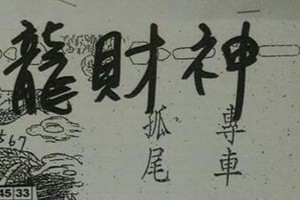 龍財神
孤尾
專車
567
45 33